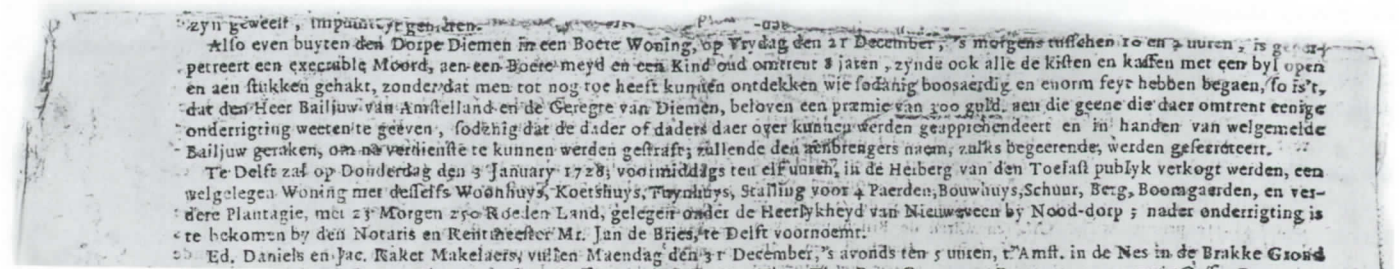 zyn geweest, impuniteyt genieten.
Also even buyten den Dorpe Diemen in een Boere Woning, op Vrydag den 21 December, 's morgens tusschen 10 en uuren, is
petreert een execrable Moord, aen een Boere meyd en een Kind oud omtrent 8 jaren, zynde ook alle de kisten en kassen met een byl open
en aen stukken gehakt, zonder dat men tot nog toe heeft kunnen ontdekken wie sodanig boosaerdig en enorm feyt hebben begaen, so is't,
dat den Heer Bailjuw van Amstelland en de Geregte van Diemen, beloven een præmie van 300 guld. aen die geene die daer omtrent eenige
onderrigting weeten te geeven, sodanig dat de dader of daders daer over kunnen werden geapprehendeert en in handen van welgemelde
Bailjuw geraken, om na verdienste te kunnen werden gestraft; zullende den aenbrengers naem, zulks begeerende, werden gesecreteert.
Te Delft zal op Donderdag den 3 January 1728, voormiddags ten elf uuren, in de Herberg van den Toelast publyk verkogt werden, een
welgelegen Woning met desselfs Woonhuys, Koetshuys, Tuynhuys, Stalling voor 4 Paerden, Bouwhuys, Schuur, Berg, Boomgaerden, en ver-
dere Plantagie, met 23 Morgen 250 Roeden Land, gelegen onder de Heerlykheyd van Nieuweveen by Nood-dorp; nader onderrigting is
te bekomen by den Notaris en Rentmeester Mr. Jan de Bries, te Delft voornoemt.
Ed. Daniels en Jac. Raket Makelaers, zullen Maendag den 31 December, 's avonds ten 5 uuren, t'Amst. in de Nes in de Brakke Grond